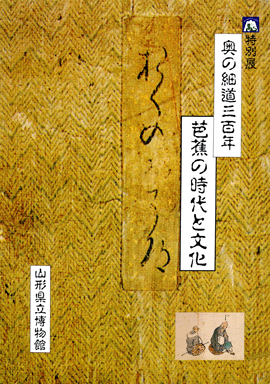 特別展
奥の細道三百年
芭蕉の時代と文化
おくのほそ道
山形県立博物館